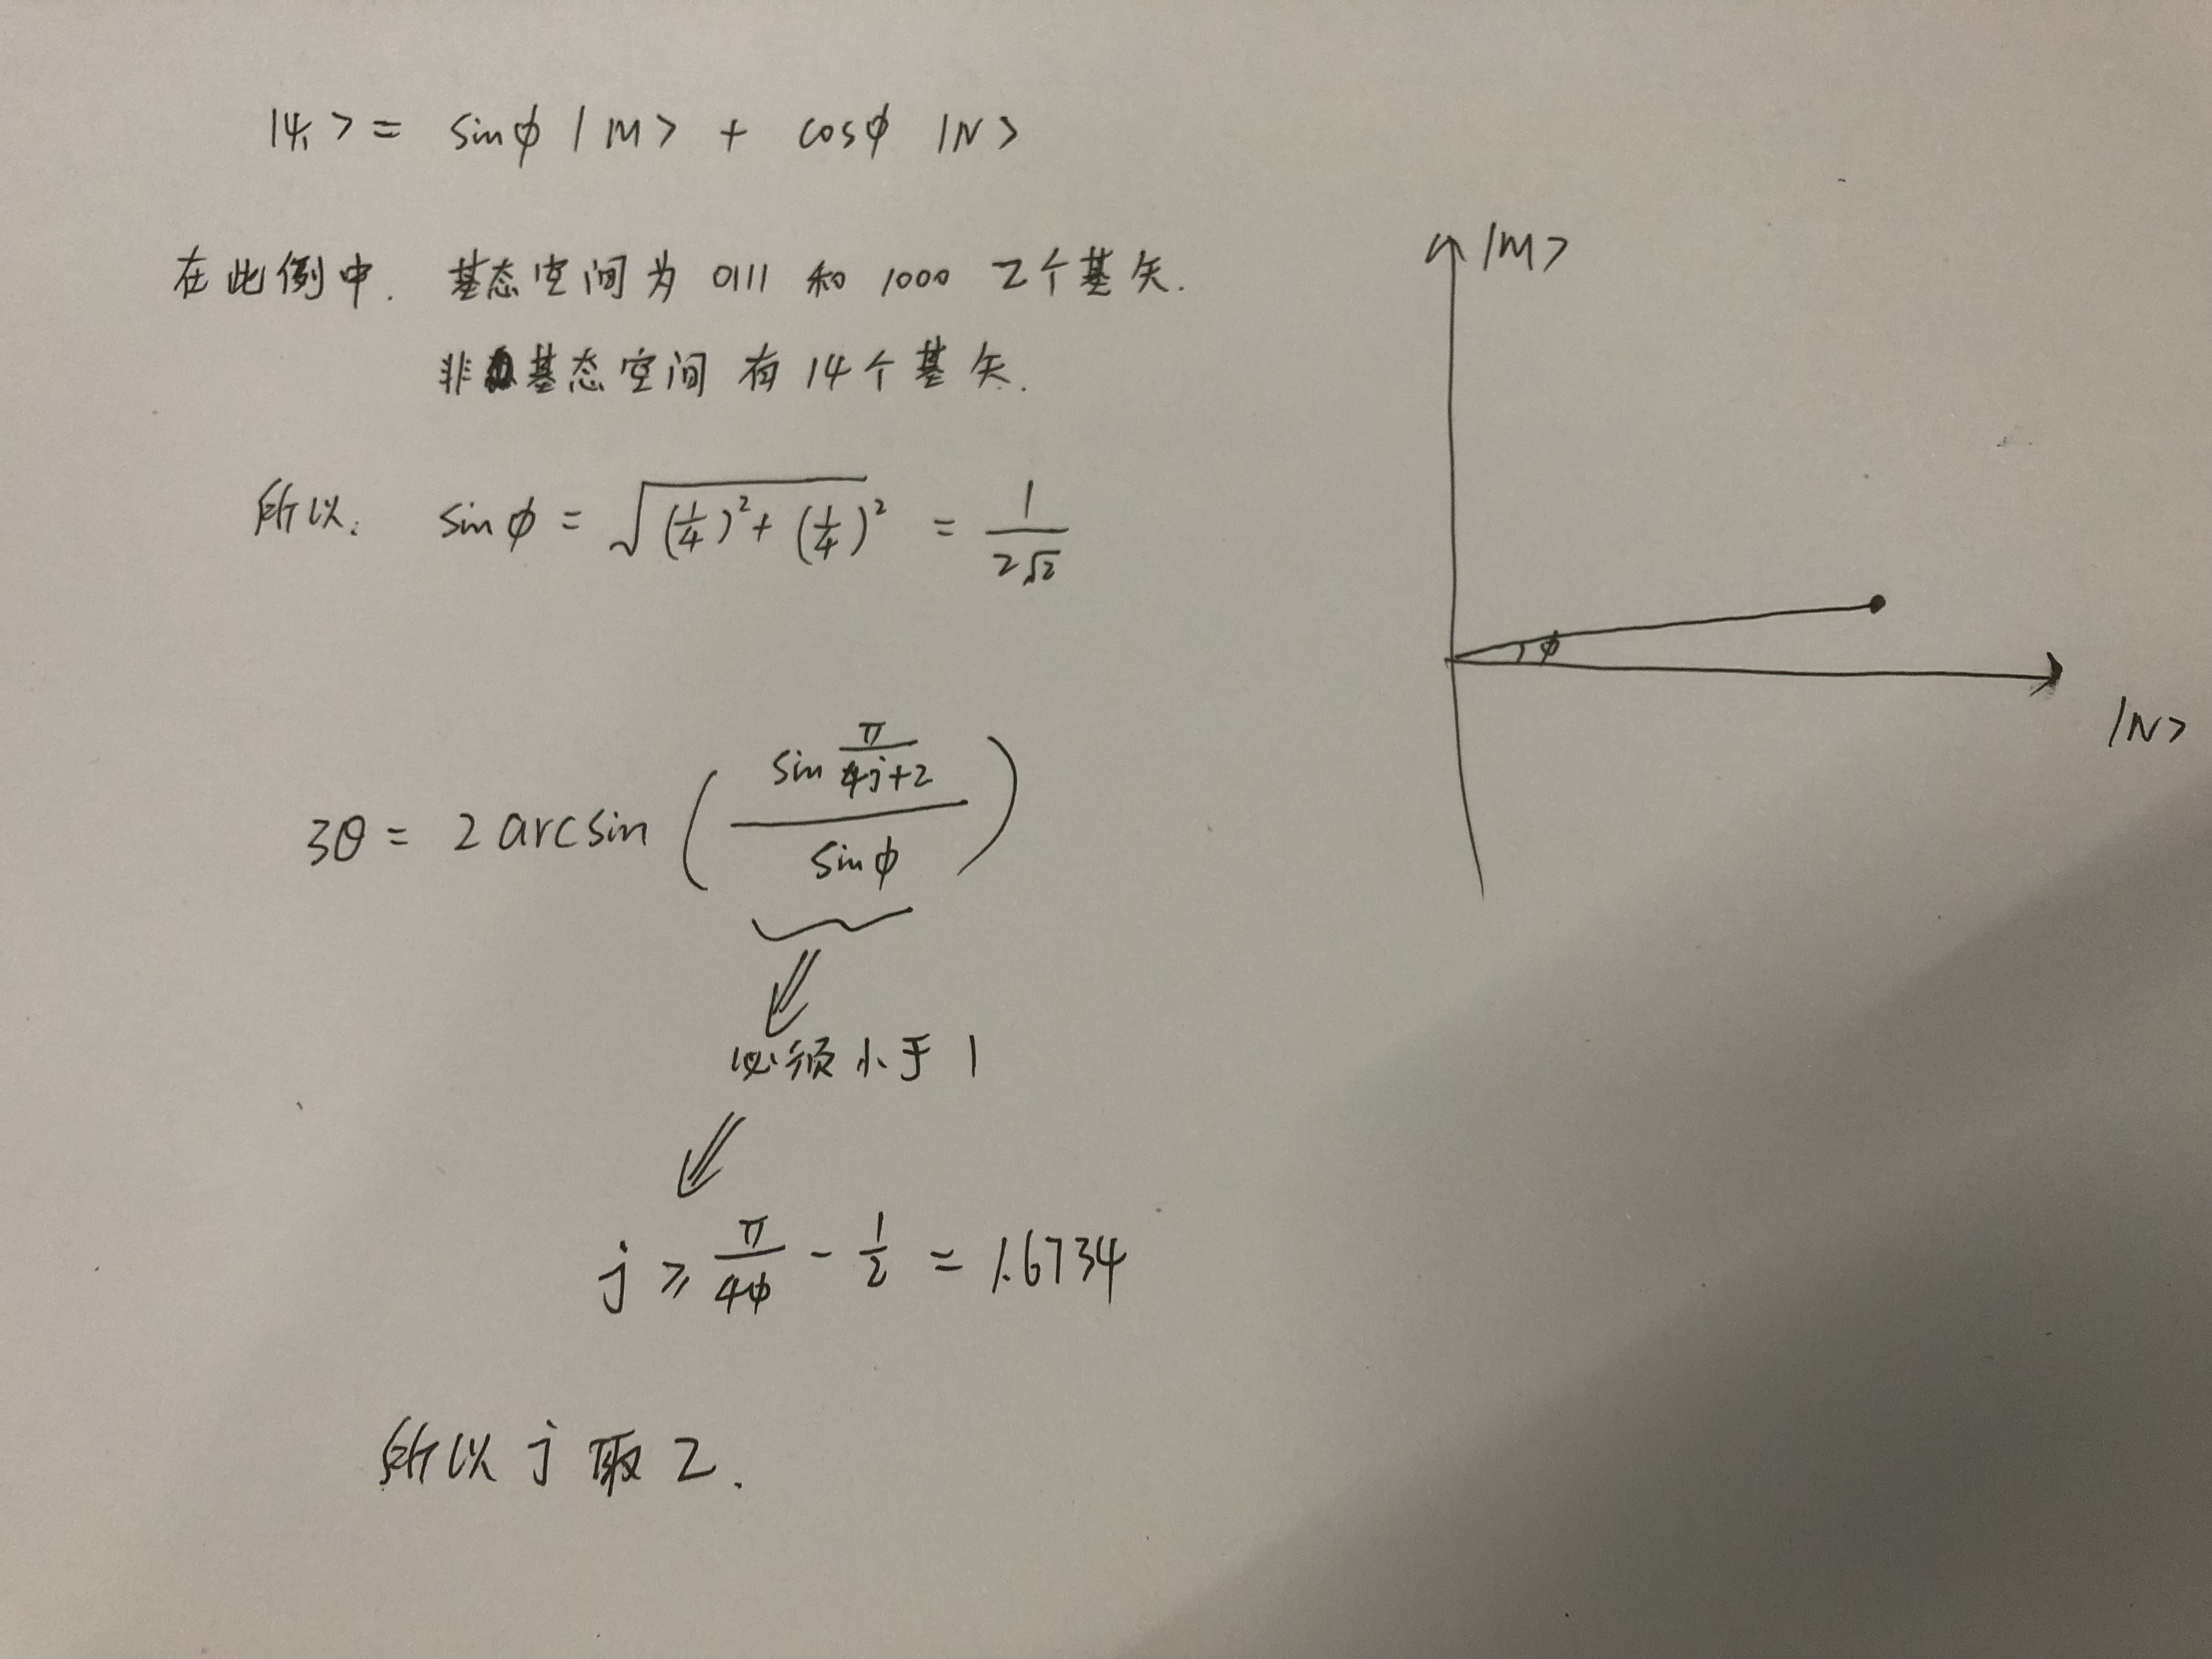 |ψ₁> = sinϕ |M> + cosϕ |N>
在此例中. 基态空间为 0111 和 1000 2个基矢.
非基态空间 有 14 个基矢.
所以: sinϕ = √((1/4)² + (1/4)²) = 1/(2√2)
3θ = 2 arcsin ( sin π/(4j+2) / sinϕ )
必须小于 1
j ≥ π/(4ϕ) - 1/2 = 1.6734
所以 j 取 2.
|M>
ϕ
|N>